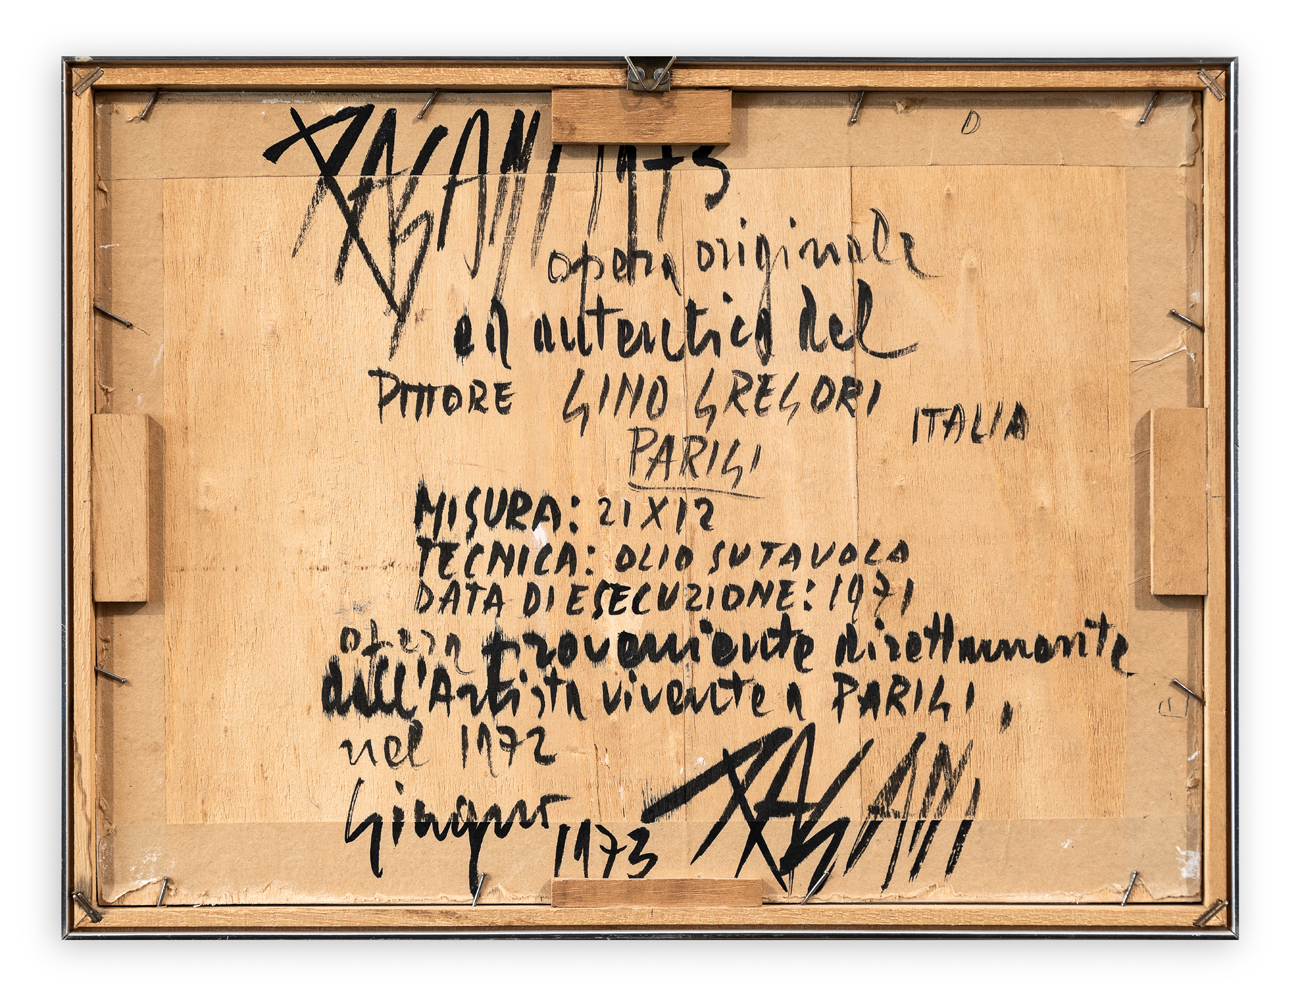 PAGANI 1973
D
opera originale
ed autentica del
PITTORE GINO GREGORI ITALIA
PARIGI
MISURA: 21X12
TECNICA: OLIO SU TAVOLA
DATA DI ESECUZIONE: 1971
opera proveniente direttamente
dall'Artista vivente a PARIGI,
nel 1972
Giugno 1973 PAGANI